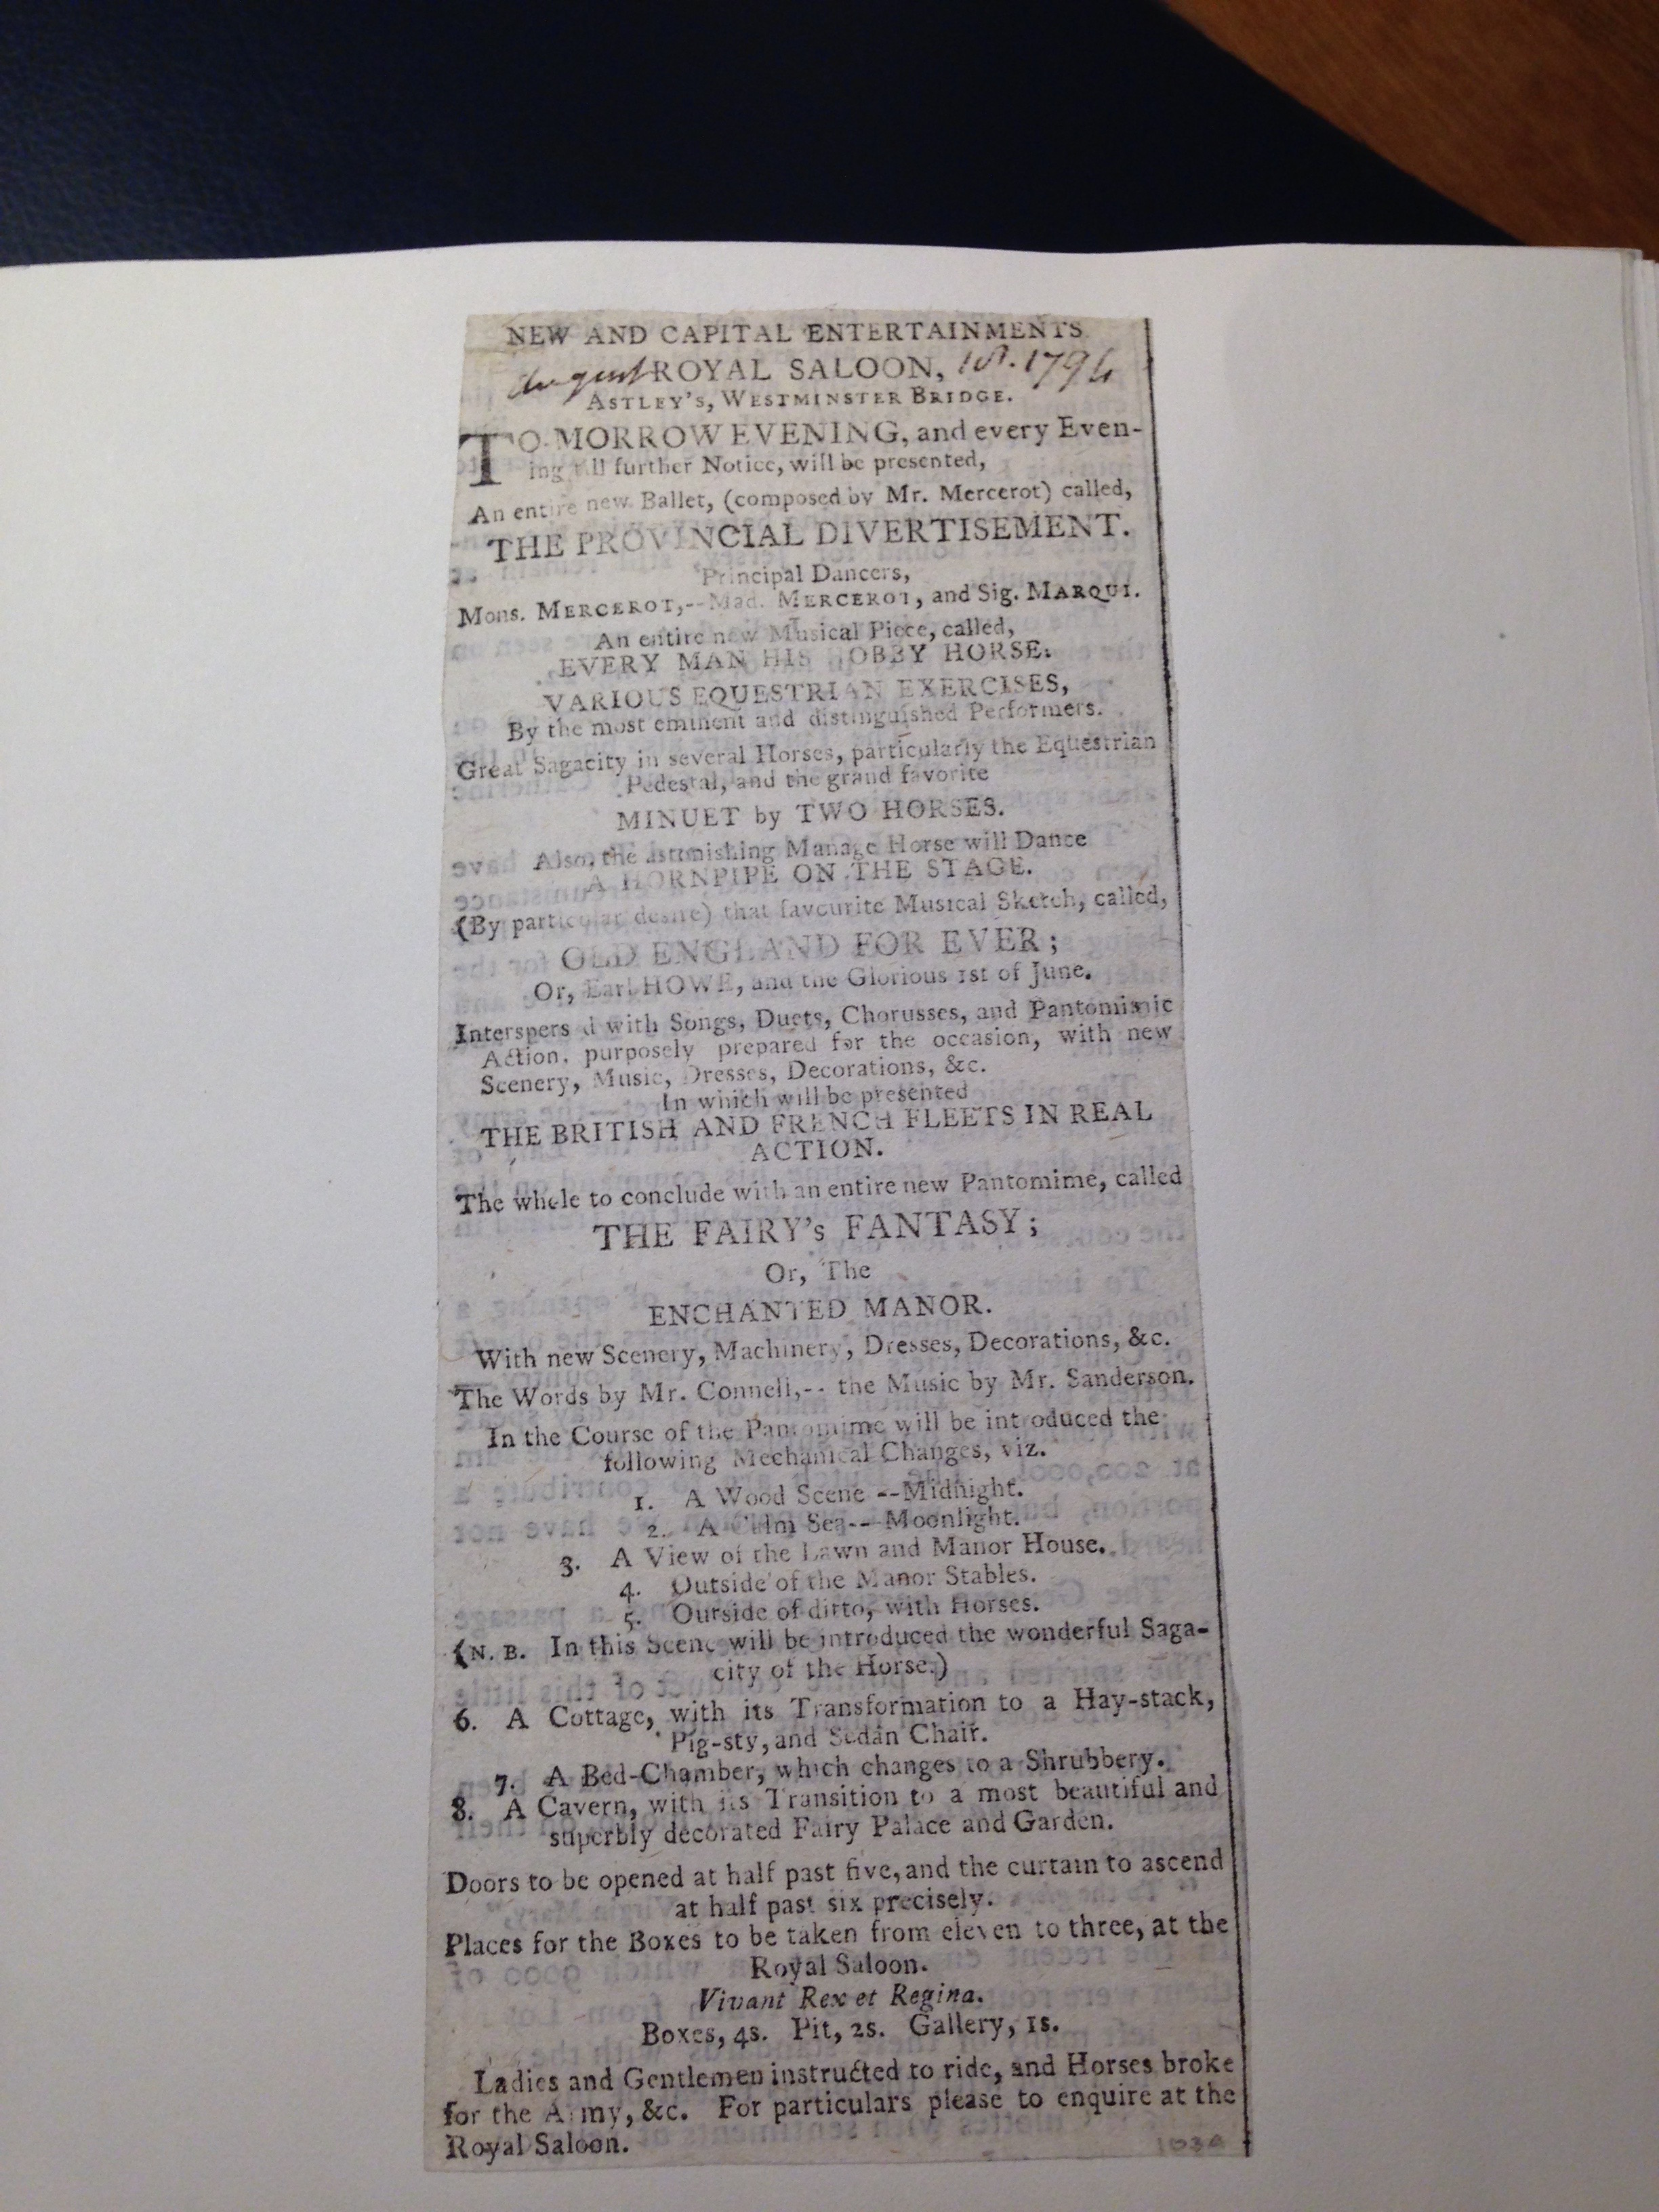 NEW AND CAPITAL ENTERTAINMENTS
August ROYAL SALOON, 1st. 1794
ASTLEY'S, WESTMINSTER BRIDGE.
TO-MORROW EVENING, and every Even-
ing till further Notice, will be presented,
An entire new Ballet, (composed by Mr. Mercerot) called,
THE PROVINCIAL DIVERTISEMENT.
Principal Dancers,
Mons. MERCEROT,--Mad. MERCEROT, and Sig. MARQUI.
An entire new Musical Piece, called,
EVERY MAN HIS HOBBY HORSE.
VARIOUS EQUESTRIAN EXERCISES,
By the most eminent and distinguished Performers.
Great Sagacity in several Horses, particularly the Equestrian
Pedestal, and the grand favorite
MINUET by TWO HORSES.
Also, the astonishing Manage Horse will Dance
A HORNPIPE ON THE STAGE.
(By particular desire) that favourite Musical Sketch, called,
OLD ENGLAND FOR EVER;
Or, Earl HOWE, and the Glorious 1st of June.
Interspersed with Songs, Duets, Chorusses, and Pantomimic
Action, purposely prepared for the occasion, with new
Scenery, Music, Dresses, Decorations, &c.
In which will be presented
THE BRITISH AND FRENCH FLEETS IN REAL
ACTION.
The whole to conclude with an entire new Pantomime, called
THE FAIRY's FANTASY;
Or, The
ENCHANTED MANOR.
With new Scenery, Machinery, Dresses, Decorations, &c.
The Words by Mr. Connell,-- the Music by Mr. Sanderson.
In the Course of the Pantomime will be introduced the
following Mechanical Changes, viz.
1. A Wood Scene --Midnight.
2. A Calm Sea---Moonlight.
3. A View of the Lawn and Manor House.
4. Outside of the Manor Stables.
5. Outside of ditto, with Horses.
(N. B. In this Scene will be introduced the wonderful Saga-
city of the Horse.)
6. A Cottage, with its Transformation to a Hay-stack,
Pig-sty, and Sedan Chair.
7. A Bed-Chamber, which changes to a Shrubbery.
8. A Cavern, with its Transition to a most beautiful and
superbly decorated Fairy Palace and Garden.
Doors to be opened at half past five, and the curtain to ascend
at half past six precisely.
Places for the Boxes to be taken from eleven to three, at the
Royal Saloon.
Vivant Rex et Regina.
Boxes, 4s. Pit, 2s. Gallery, 1s.
Ladies and Gentlemen instructed to ride, and Horses broke
for the Army, &c. For particulars please to enquire at the
Royal Saloon.